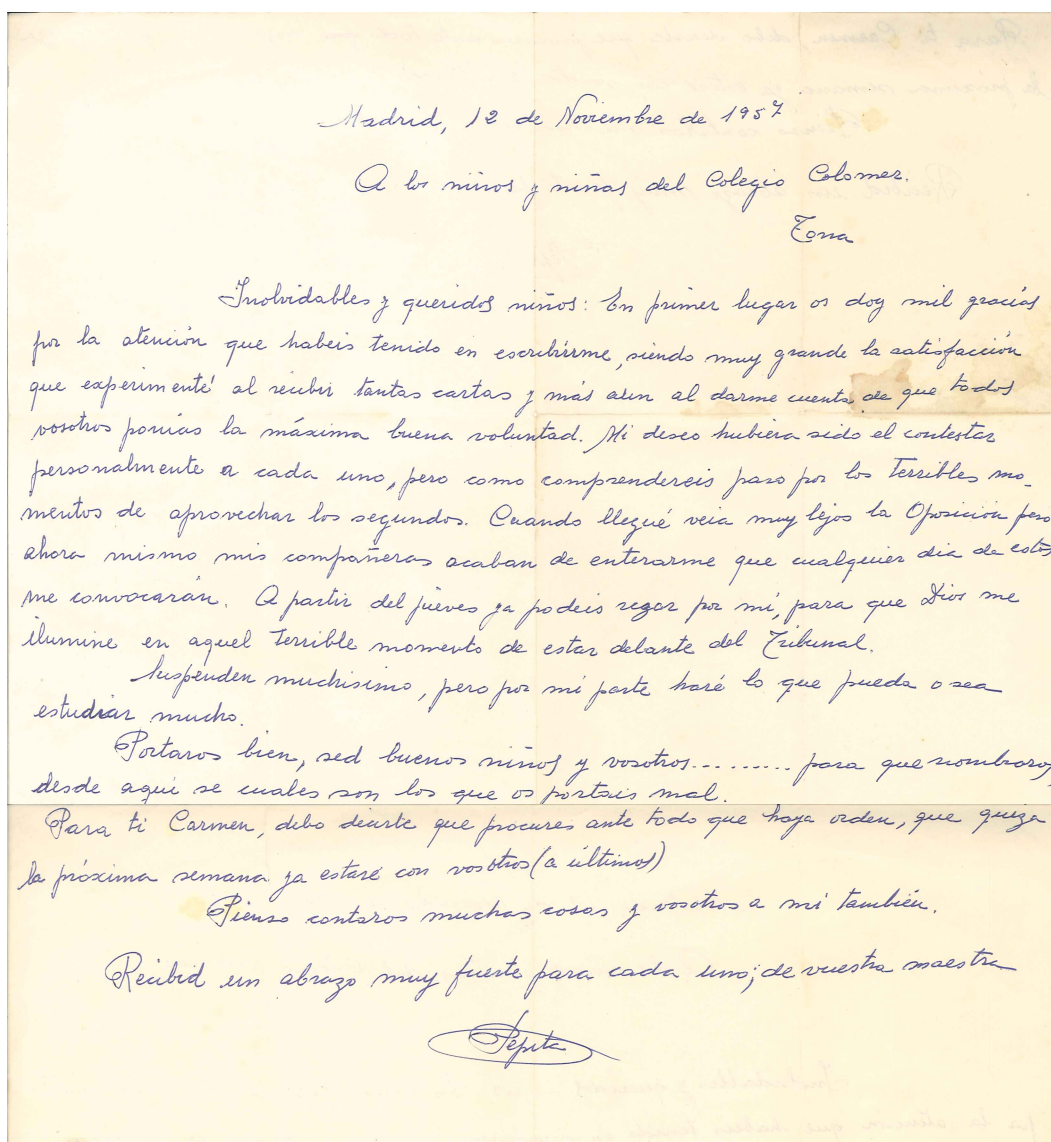 Madrid, 12 de Noviembre de 1957
A los niños y niñas del Colegio Colomer.
Tona
Inolvidables y queridos niños: En primer lugar os doy mil gracias
por la atención que habeis tenido en escribirme, siendo muy grande la satisfacción
que experimenté al recibir tantas cartas y más aún al darme cuenta de que todos
vosotros ponias la máxima buena voluntad. Mi deseo hubiera sido el contestar
personalmente a cada uno, pero como comprendereis paso por los terribles mo-
mentos de aprovechar los segundos. Cuando llegué veia muy lejos la Oposición pero
ahora mismo mis compañeras acaban de enterarme que cualquier dia de estos
me convocarán. A partir del jueves ya podeis rezar por mi, para que Dios me
ilumine en aquel terrible momento de estar delante del Tribunal.
Suspenden muchisimo, pero por mi parte haré lo que pueda o sea
estudiar mucho.
Portaros bien, sed buenos niños y vosotros......... para que nombraros,
desde aqui se cuales son los que os portais mal.
Para ti Carmen, debo decirte que procures ante todo que haya orden, que quiza
la próxima semana ya estaré con vosotros (a últimos)
Pienso contaros muchas cosas y vosotros a mi también.
Recibid un abrazo muy fuerte para cada uno; de vuestra maestra
Pepita